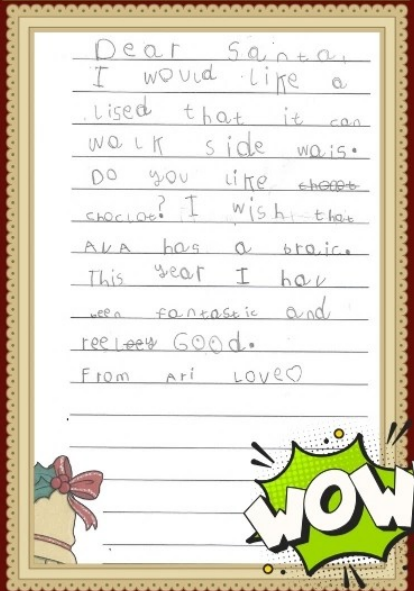 Dear Santa,
I would like a
Lised that it can
walk side wais.
Do you like
choclat? I wish that
AvA has a braic.
This year I hav
been fantastic and
ree GOOd.
From Ari Love♡
WOW